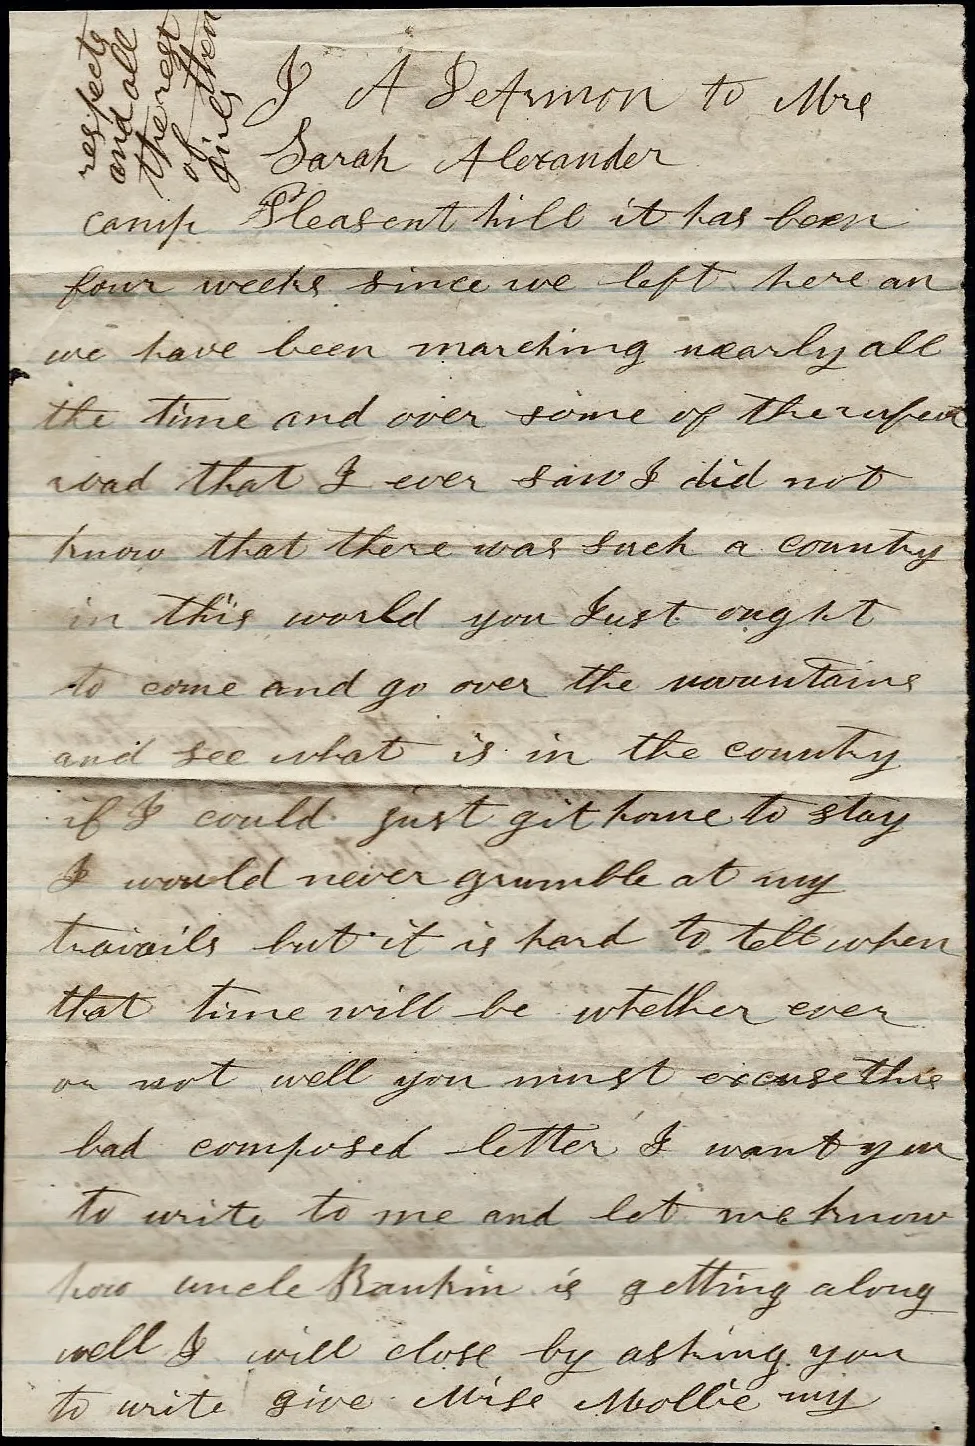 J A DeArmon to Mrs
Sarah Alexander
camp Pleasent hill it has been
four weeks since we left here an
we have been marching nearly all
the time and over some of the rufest
road that I ever saw I did not
know that there was such a country
in this world you Just ought
to come and go over the mountains
and see what is in the country
if I could just git home to stay
I would never grumble at my
travails but it is hard to tell when
that time will be whether ever
or not well you must excuse this
bad composed letter I want you
to write to me and let me know
how uncle Rankin is getting along
well I will close by asking you
to write give Miss Mollie my
respects
and all
the rest
of then
girls